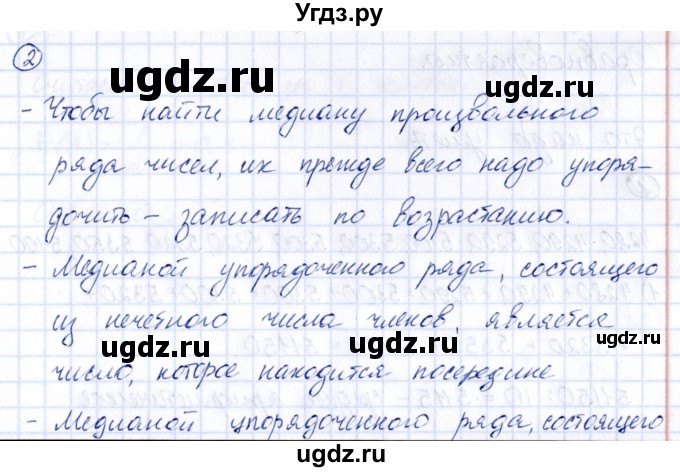 Угдз.ру
2
ugdz.ru ugdz.ru
- Чтобы найти медиану произвольного
ряда чисел, их прежде всего надо упоря-
ugdz.ru
дочить - записать по возрастанию.
- Медианой упорядоченного ряда, состоящего
ugdz.ru
из нечетного числа членов, является
ugdz.ru ugdz.ru
число, которое находится посередине
- Медианой упорядоченного ряда, состоящего
ugdz.ru